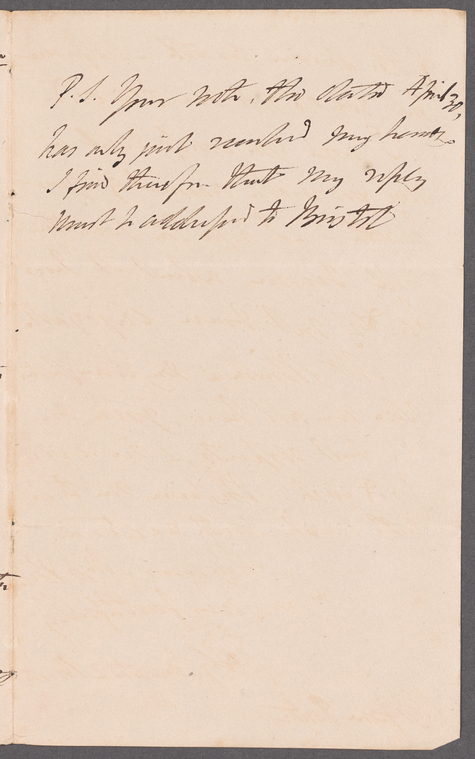 P.S. Your note, tho dated April 30,
has only just reached my hands.
I find therefore that my reply
must be addressed to Bristol